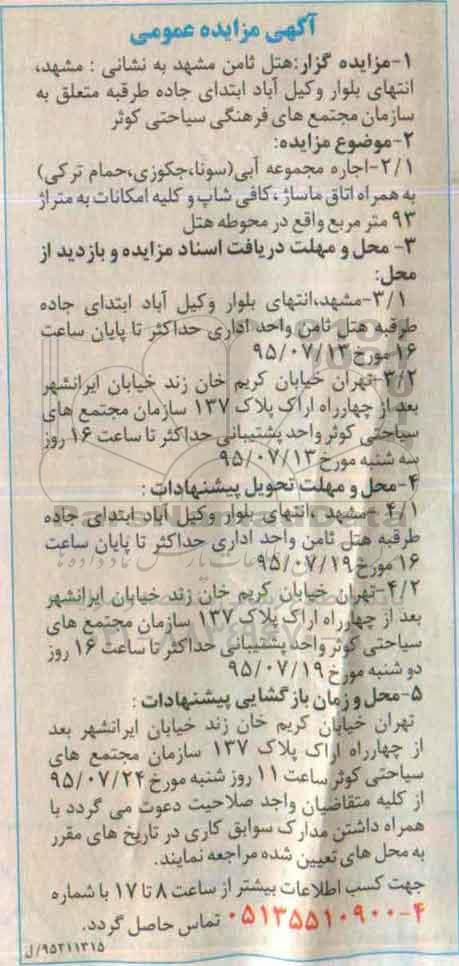 آگهی مزایده عمومی
۱-مزایده گزار:هتل ثامن مشهد به نشانی : مشهد،
انتهای بلوار وکیل آباد ابتدای جاده طرقبه متعلق به
سازمان مجتمع های فرهنگی سیاحتی کوثر
۲-موضوع مزایده:
۲/۱-اجاره مجموعه آبی(سونا،جکوزی،حمام ترکی)
به همراه اتاق ماساژ ،کافی شاپ و کلیه امکانات به متراژ
۹۳ متر مربع واقع در محوطه هتل
۳- محل و مهلت دریافت اسناد مزایده و بازدید از
محل:
۳/۱-مشهد،انتهای بلوار وکیل آباد ابتدای جاده
طرقبه هتل ثامن واحد اداری حداکثر تا پایان ساعت
۱۶ مورخ ۹۵/۰۷/۱۳
۳/۲-تهران خیابان کریم خان زند خیابان ایرانشهر
بعد از چهارراه اراک پلاک ۱۳۷ سازمان مجتمع های
سیاحتی کوثر واحد پشتیبانی حداکثر تا ساعت ۱۶ روز
سه شنبه مورخ ۹۵/۰۷/۱۳
۴-محل و مهلت تحویل پیشنهادات :
۴/۱-مشهد ،انتهای بلوار وکیل آباد ابتدای جاده
طرقبه هتل ثامن واحد اداری حداکثر تا پایان ساعت
۱۶ مورخ ۹۵/۰۷/۱۹
۴/۲-تهران خیابان کریم خان زند خیابان ایرانشهر
بعد از چهارراه اراک پلاک ۱۳۷ سازمان مجتمع های
سیاحتی کوثر واحد پشتیبانی حداکثر تا ساعت ۱۶ روز
دو شنبه مورخ ۹۵/۰۷/۱۹
۵-محل و زمان بازگشایی پیشنهادات :
تهران خیابان کریم خان زند خیابان ایرانشهر بعد
از چهارراه اراک پلاک ۱۳۷ سازمان مجتمع های
سیاحتی کوثر ساعت ۱۱ روز شنبه مورخ ۹۵/۰۷/۲۴
از کلیه متقاضیان واجد صلاحیت دعوت می گردد با
همراه داشتن مدارک سوابق کاری در تاریخ های مقرر
به محل های تعیین شده مراجعه نمایند.
جهت کسب اطلاعات بیشتر از ساعت ۸ تا ۱۷ با شماره
۰۵۱۳۵۵۱۰۹۰۰-۴ تماس حاصل گردد.
۹۵۲۱۱۳۱۵/ل